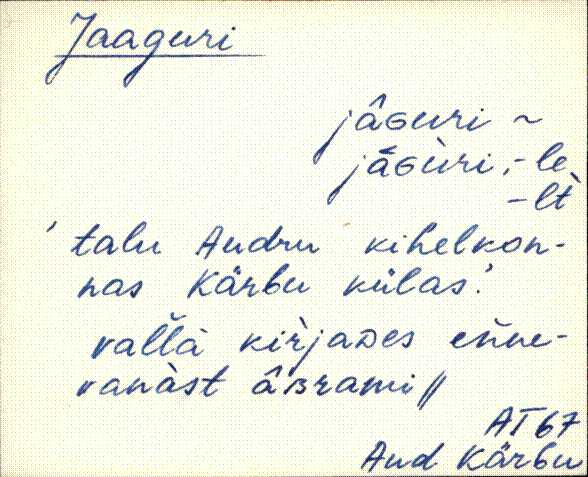 Jaaguri
jâɢuri ~
jâɢùri, -le
-lt̀
' talu Audru kihelkon-
nas Kärbu külas.'
valľà kìrjaᴅes eǹne-
vanàst âʙrami //
AT 67
Aud Kärbu